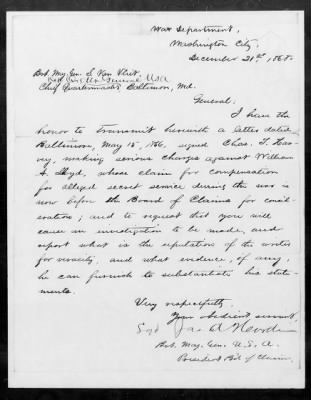 War Department,
Washington City,
December 21st, 1868.
Bvt. Maj. Gen. S. Van Vliet,
U.S.A
Chief Quartermaster Baltimore, Md.
General:
I have the
honor to transmit herewith a letter dated
Baltimore, May 15, 1866, signed Chas. T. Har-
vey, making serious charges against William
A. Lloyd, whose claim for compensation
for alleged secret service during the war is
now before the Board of Claims for consid-
eration; and to request that you will
cause an investigation to be made, and
report what is the reputation of the writer
for veracity, and what evidence, if any,
he can furnish to substantiate his state-
ments.
Very respectfully,
Your obedient servant,
Sgd Jas. A
Bvt. Maj. Gen. U.S.A.
President Bd. of Claims.